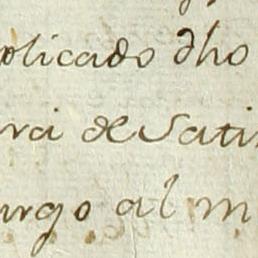 plicado dho
ra de Sati
urgo al m